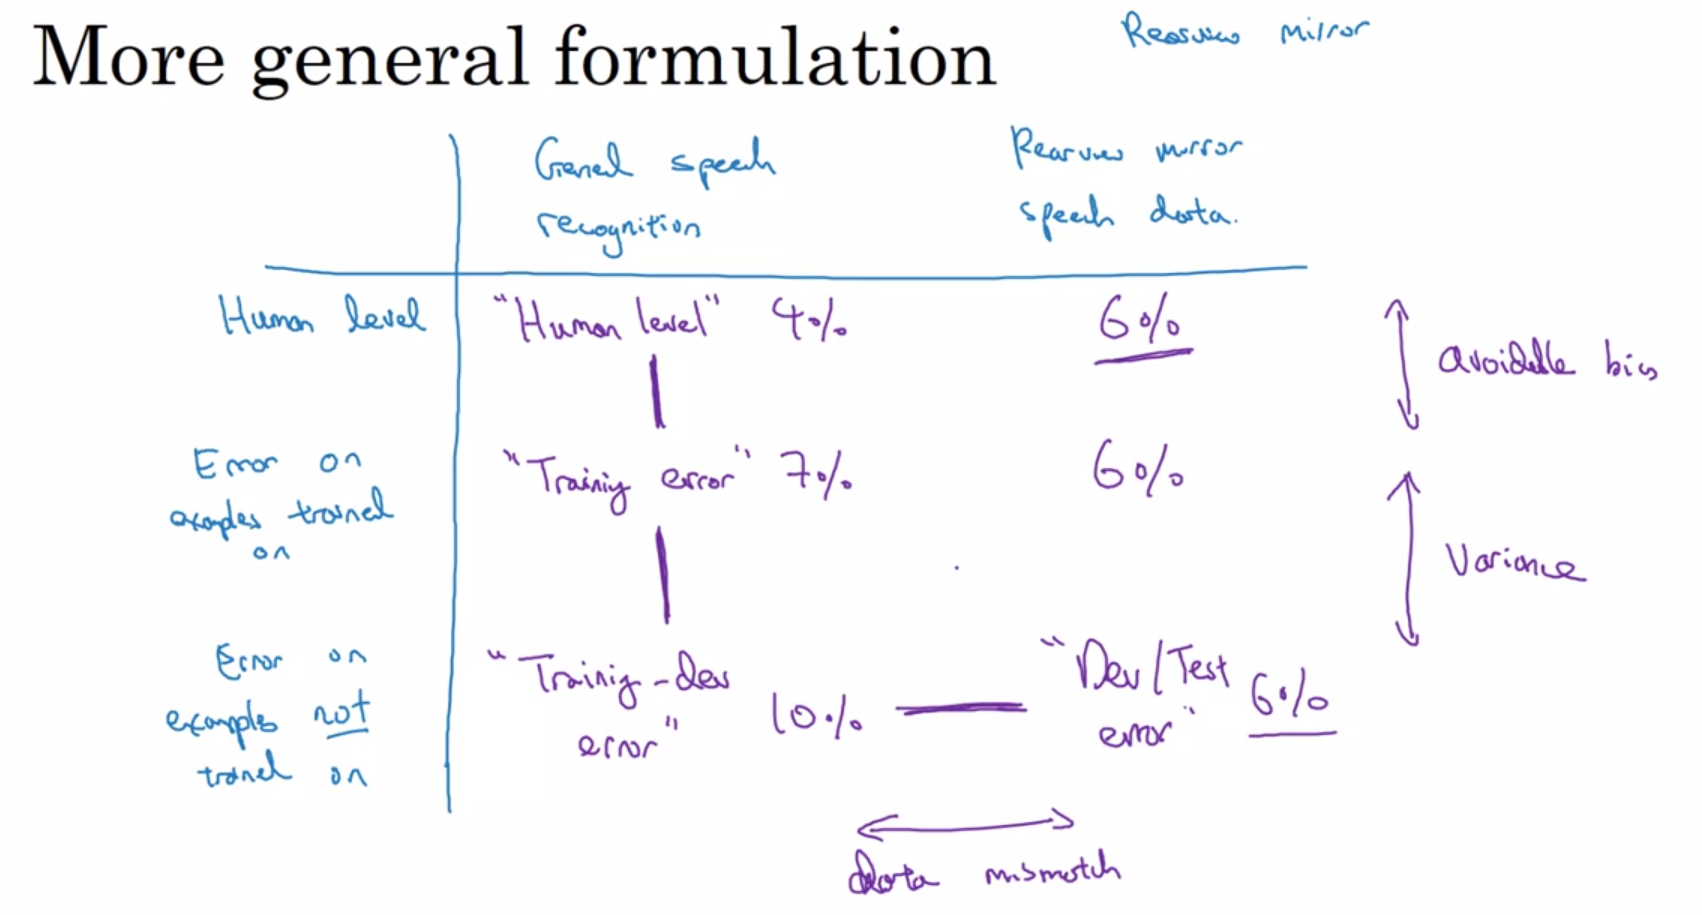 More general formulation
Rearview mirror
General speech
recognition
Rearview mirror
speech data.
Human level
"Human level" 4%
6%
avoidable bias
Error on
examples trained
on
"Training error" 7%
6%
Variance
Error on
examples not
trained on
"Training-dev
error" 10%
"Dev/Test
error" 6%
data mismatch